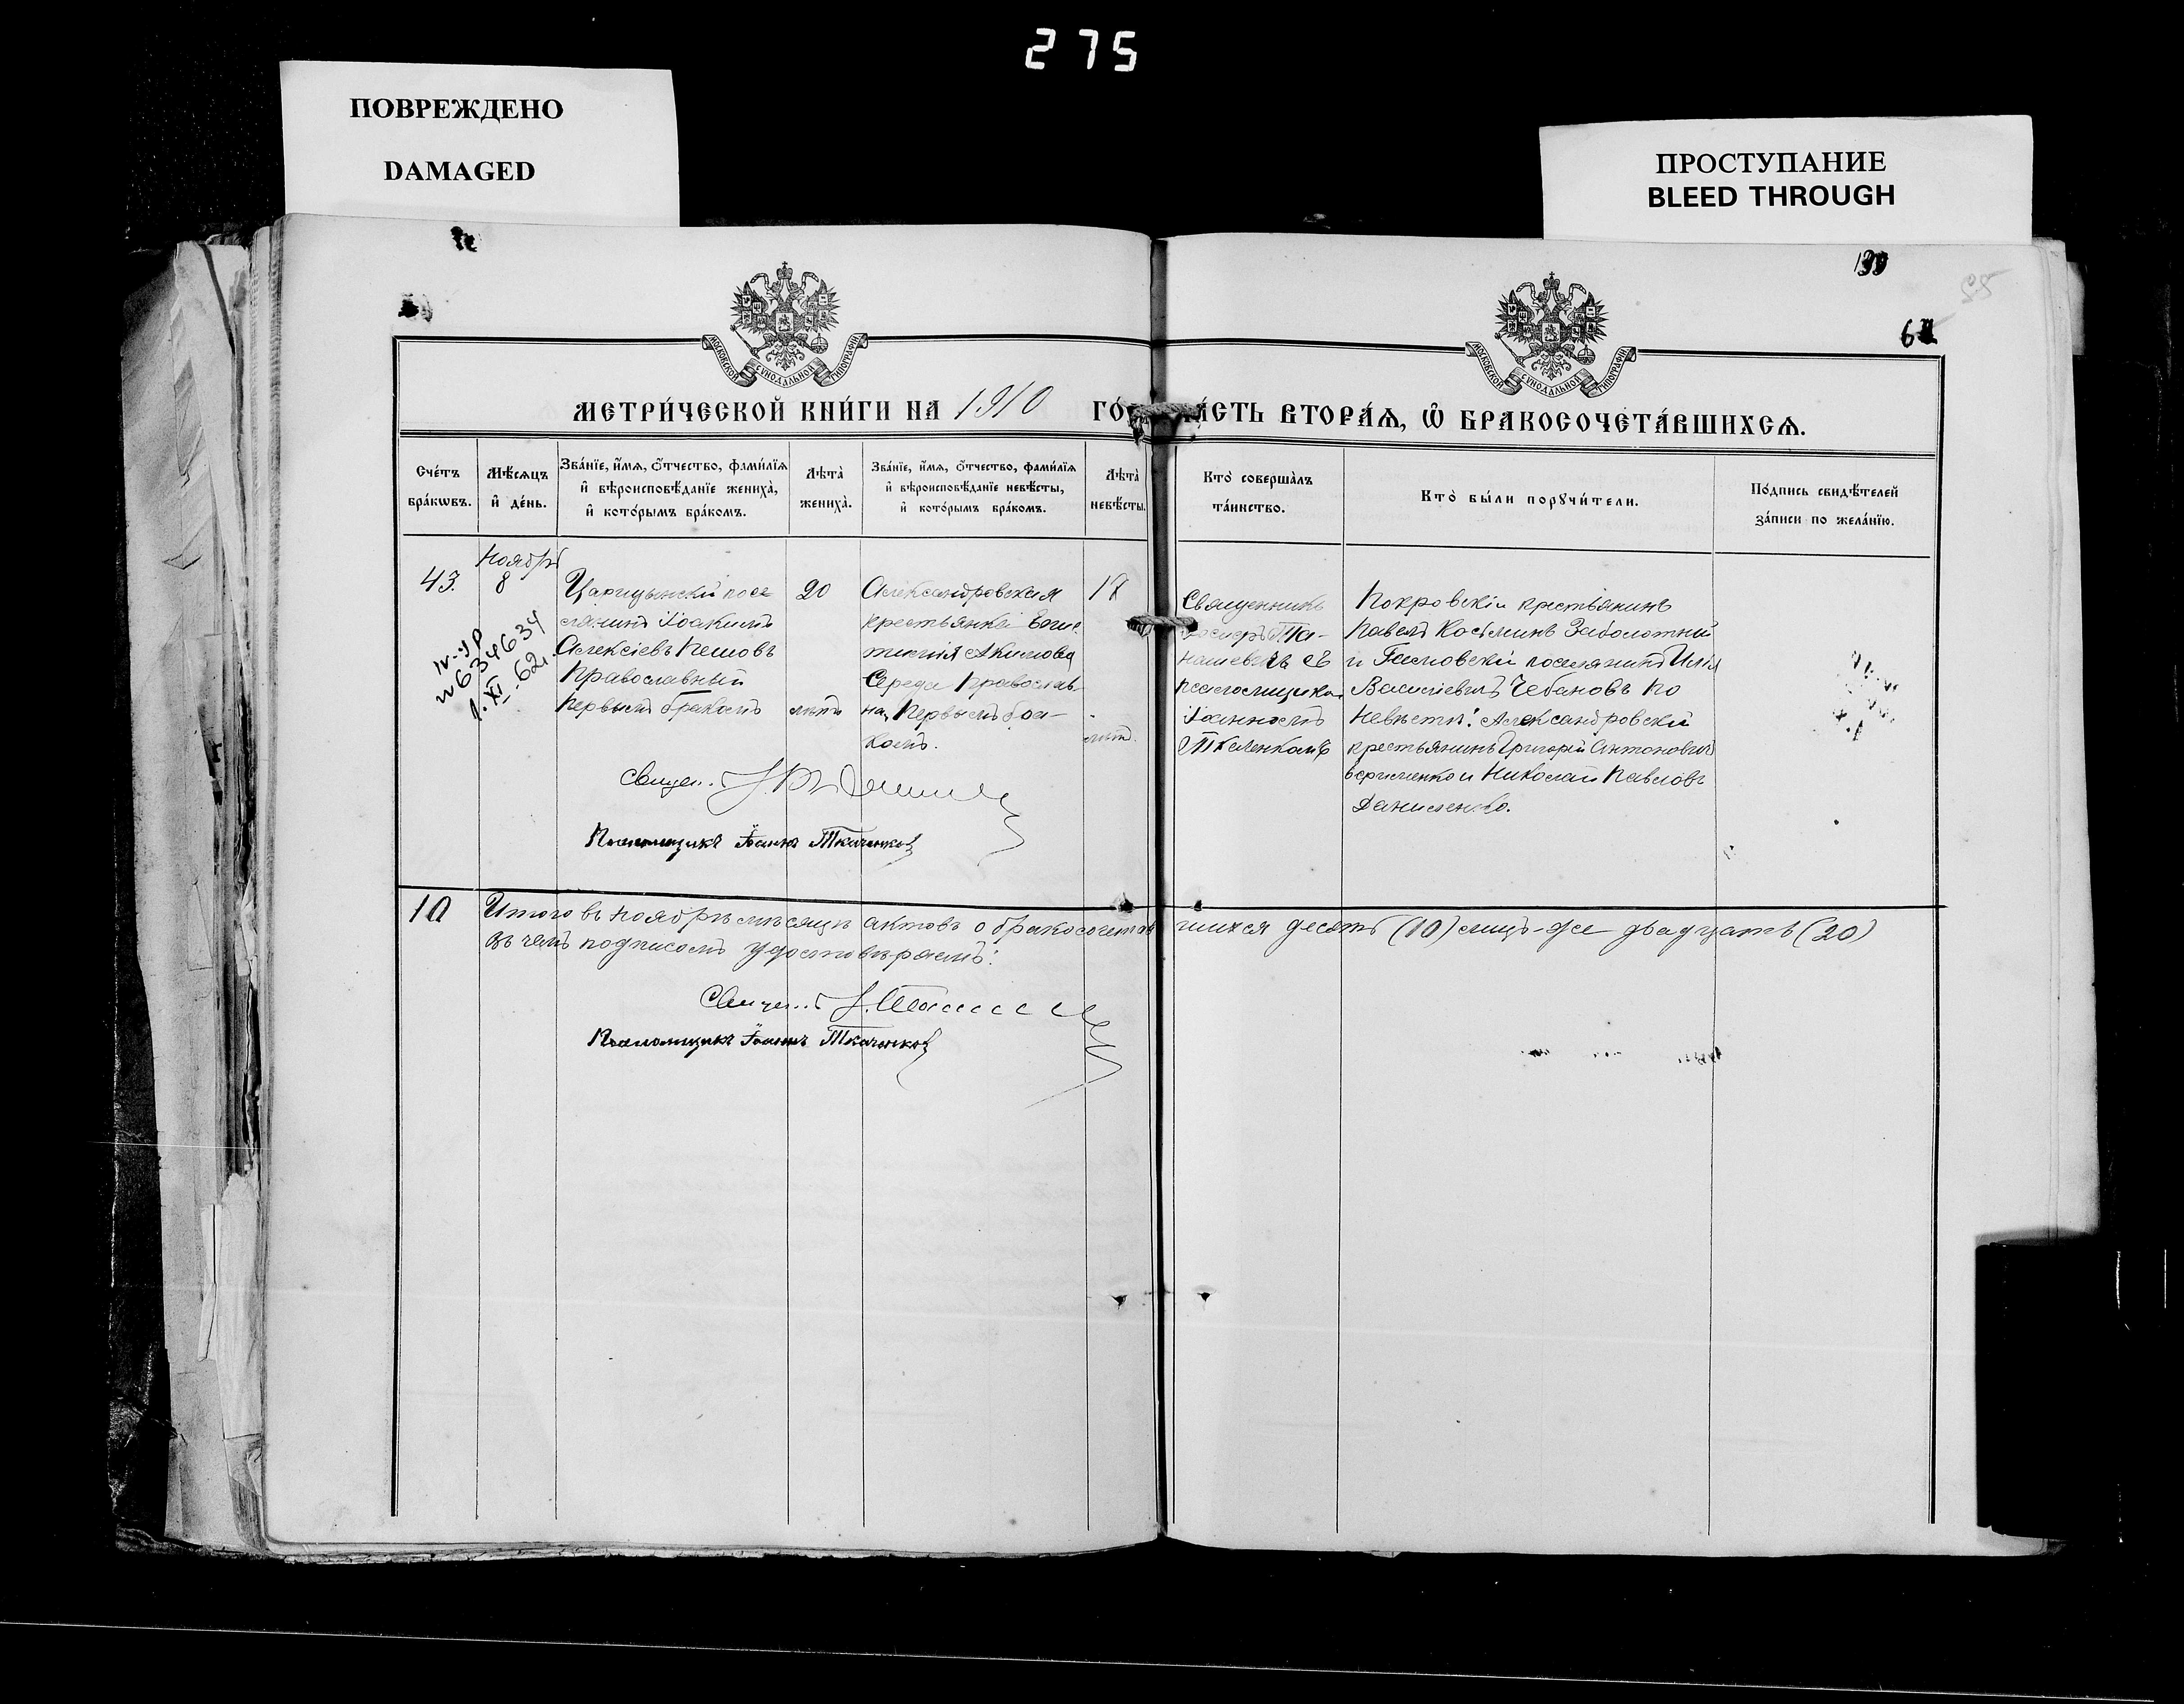 275
ПОВРЕЖДЕНО
DAMAGED
ПРОСТУПАНИЕ
BLEED THROUGH
МОСКОВСКОЙ СУНОДАЛЬНОЙ ТИПОГРАФІИ
МОСКОВСКОЙ СУНОДАЛЬНОЙ ТИПОГРАФІИ
МЕТРИ́ЧЕСКОЙ КНИ́ГИ НА 1910 ГО́ ЧА́СТЬ ВТОРА́Ѧ, Ѡ҆ БРАКОСОЧЕТА́ВШИХСѦ.
Сче́тъ бра́кѡвъ.
Мѣ́сѧцъ и҆ де́нь.
Зва́нїе, и҆́мѧ, ѻ҆́тчество, фами́лїѧ и҆ вѣроисповѣ́данїе жениха̀, и҆ кото́рымъ бра́комъ.
Лѣта̀ жениха̀.
Зва́нїе, и҆́мѧ, ѻ҆́тчество, фами́лїѧ и҆ вѣроисповѣ́данїе невѣ́сты, и҆ кото́рымъ бра́комъ.
Лѣта̀ невѣ́сты.
Кто̀ соверша́лъ та́инство.
Кто̀ бы́ли порꙋчи́тели.
По́дпись свидѣ́телей за́писи по жела́нїю.
43.
Ноябрь
8
634634
1.XI-62
Царицынскій посе
лянинъ Іоакимъ
Алексіевъ Пешовъ
Православный
Первымъ бракомъ
20
лѣтъ
Александровская
крестьянка
Акимова
Середа Православ-
на, Первымъ бра-
комъ.
17
лѣтъ.
Священникъ
Та-
нашевичъ съ
псаломщикомъ
Іоанномъ
Ткаченкомъ
Покровскій крестьянинъ
Павелъ Косьминъ Заболотный
и поселянинъ Илія
Василіевичъ Чебановъ по
Невѣсте: Александровскій
крестьянинъ Григорій Антоновичъ
и Николай Павловъ
Даниленко.
Священ.
Псаломщикъ Іоаннъ Ткаченков
10
Итого въ Ноябрѣ мѣсяцѣ актовъ о бракосочетав шихся десять (10) лицъ-же двадцать (20)
въ чемъ подписомъ удостовѣряемъ:
Священ.
Псаломщикъ Іоаннъ Ткаченков